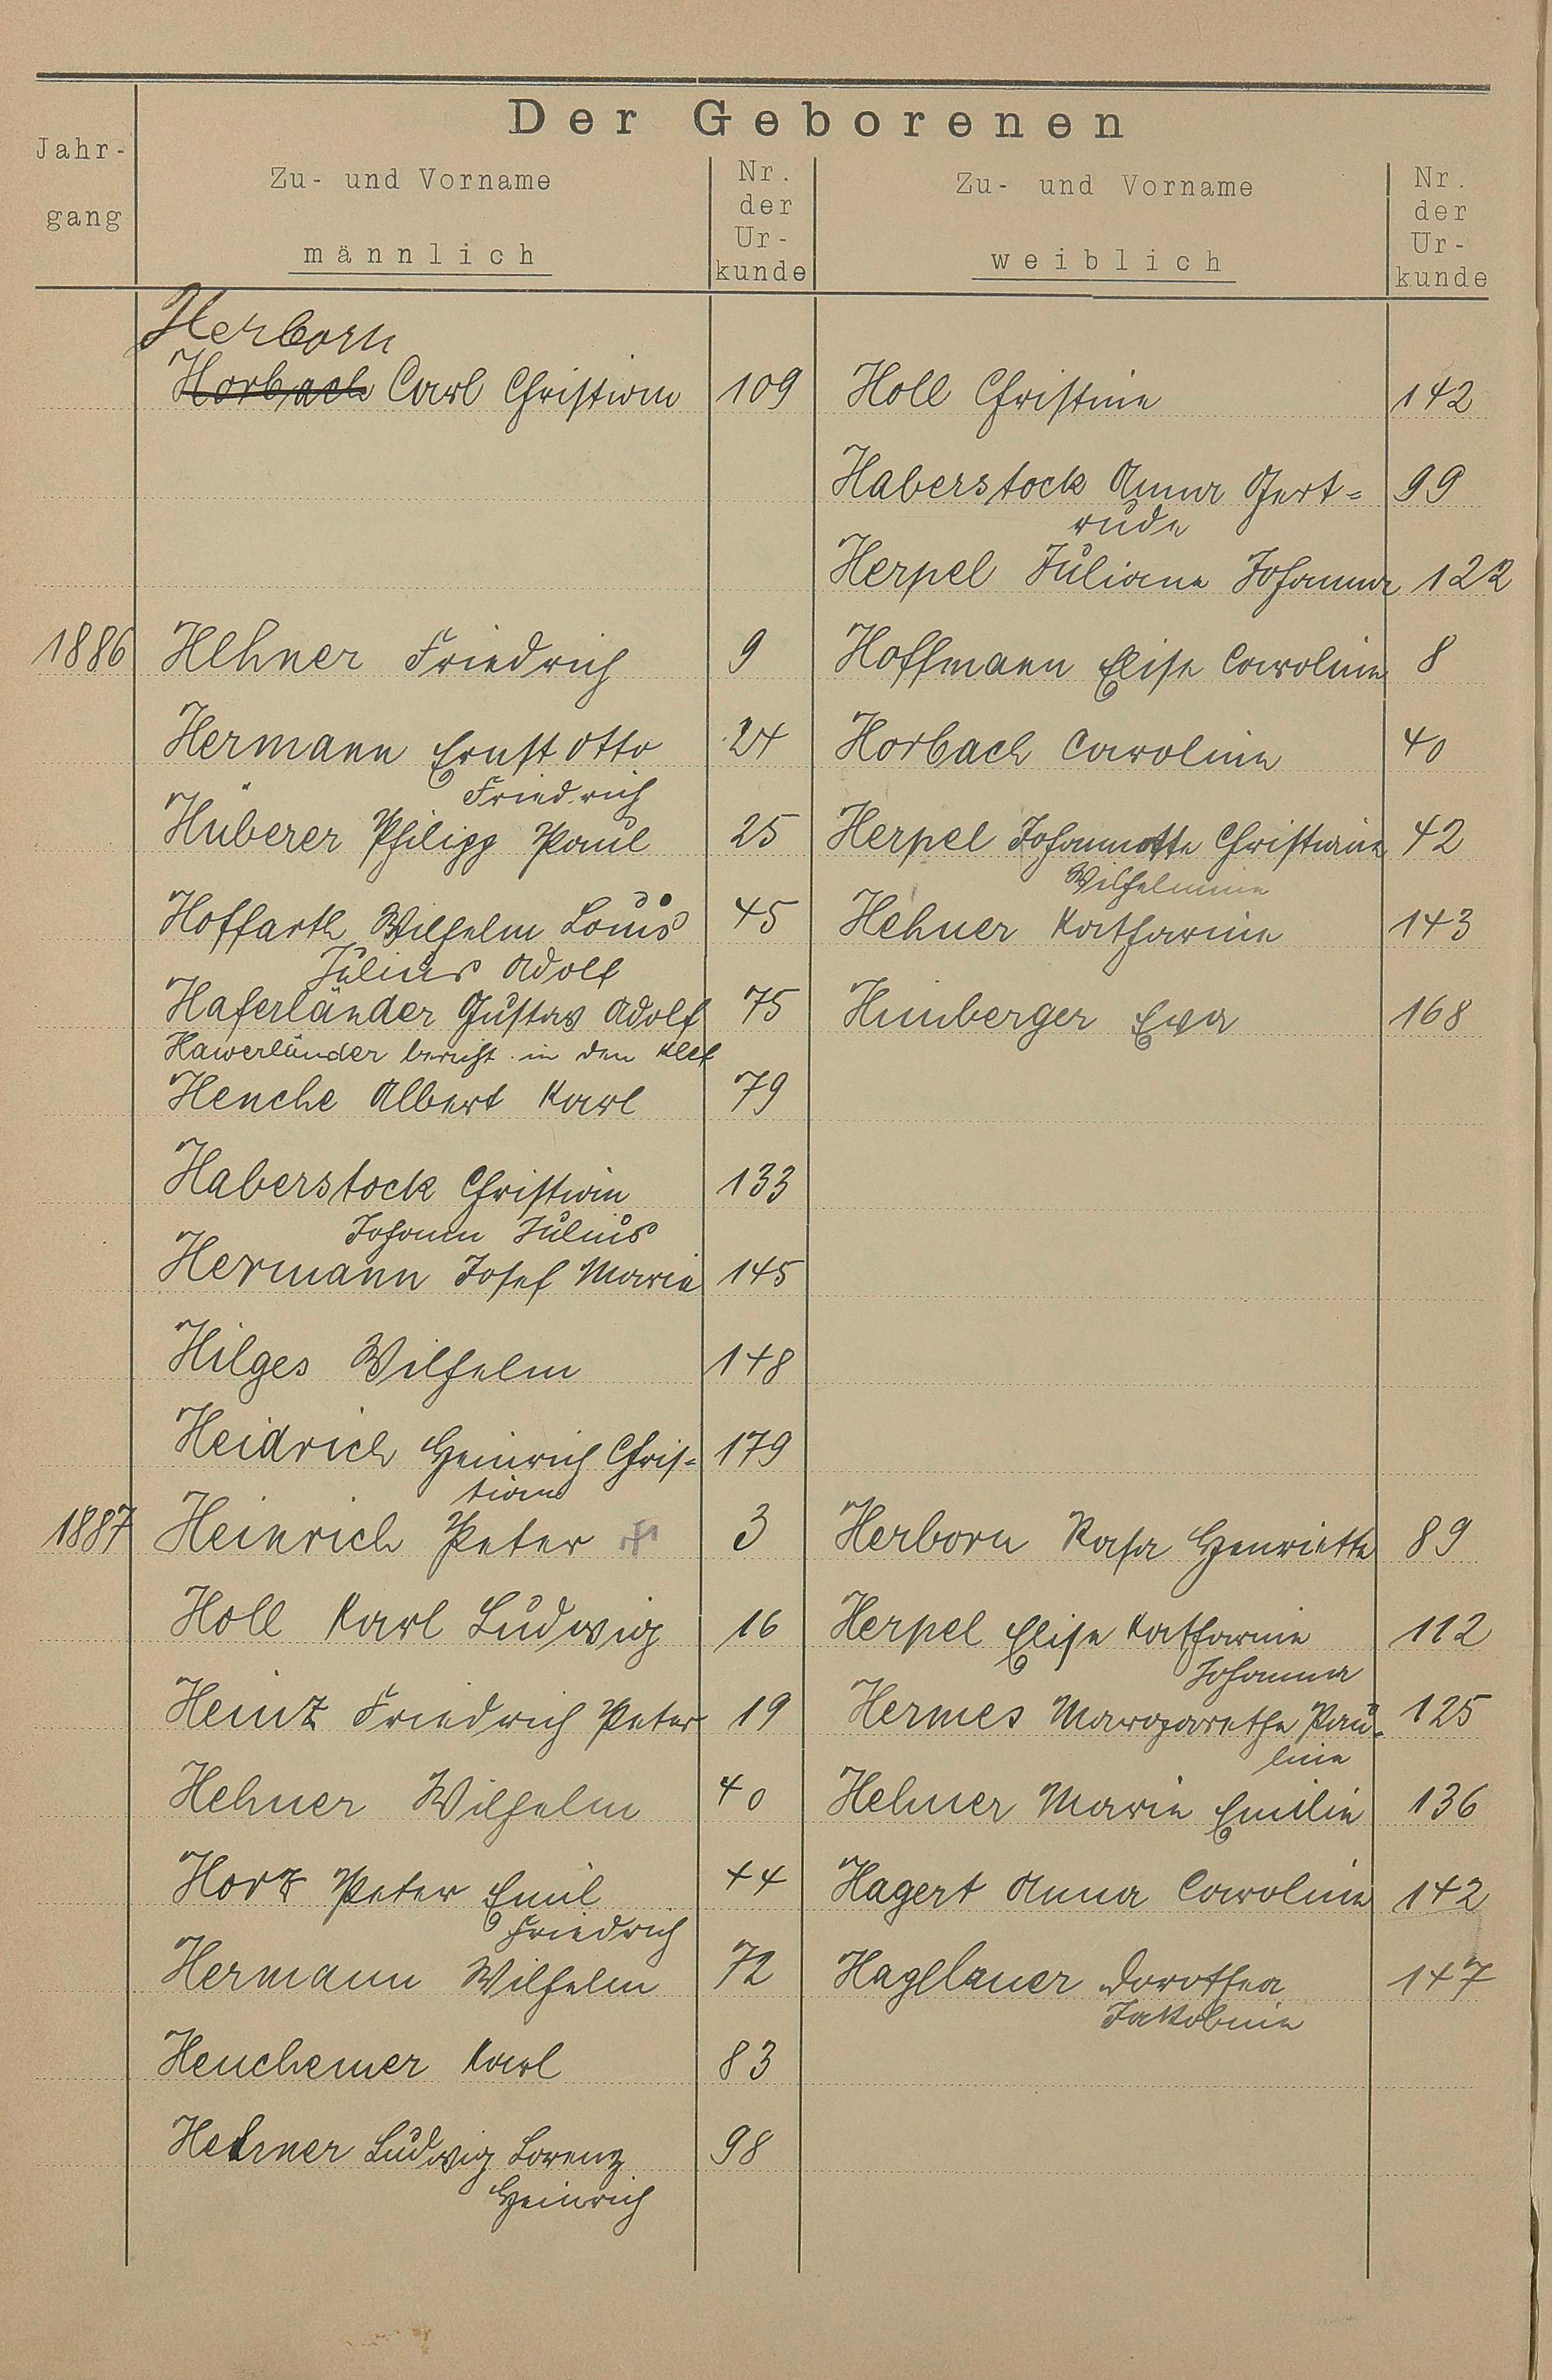 Der Geborenen
Jahr-
gang
Zu- und Vorname
männlich
Nr.
der
Ur-
kunde
Zu- und Vorname
weiblich
Nr.
der
Ur-
kunde
Herborn
Horbach Carl Christian 109 Holl Christine 142
Haberstock Anna Gert= 99
rude
Herpel Juliane Johanna 122
1886 Hehner Friedrich 9 Hoffmann Elise Caroline 8
Hermann Ernst Otto 24 Horbach Caroline 40
Friedrich
Hüberer Philipp Paul 25 Herpel Johannette Christiane 42
Wilhelmine
Hoffarth Wilhelm Louis 45 Hehner Katharine 143
Julius Adolf
Haferländer Gustav Adolf 75 Himberger Eva 168
Hawerländer bericht. in den
Henche Albert Karl 79
Haberstock Christian 133
Johann Julius
Hermann Josef Maria 145
Hilges Wilhelm 148
Heidrich Heinrich Chris= 179
tian
1887 Heinrich Peter 3 Herborn Rosa Henriette 89
Holl Karl Ludwig 16 Herpel Elise Katharine 112
Johanna
Heinz Friedrich Peter 19 Hermes Margarethe Pau- 125
line
Hehner Wilhelm 40 Hehner Marie Emilie 136
Peter Emil 44 Hagert Anna Caroline 142
Friedrich
Hermann Wilhelm 72 Hagelauer Dorothea 147
Jakobine
Henchemer Karl 83
Hehner Ludwig Lorenz 98
Heinrich